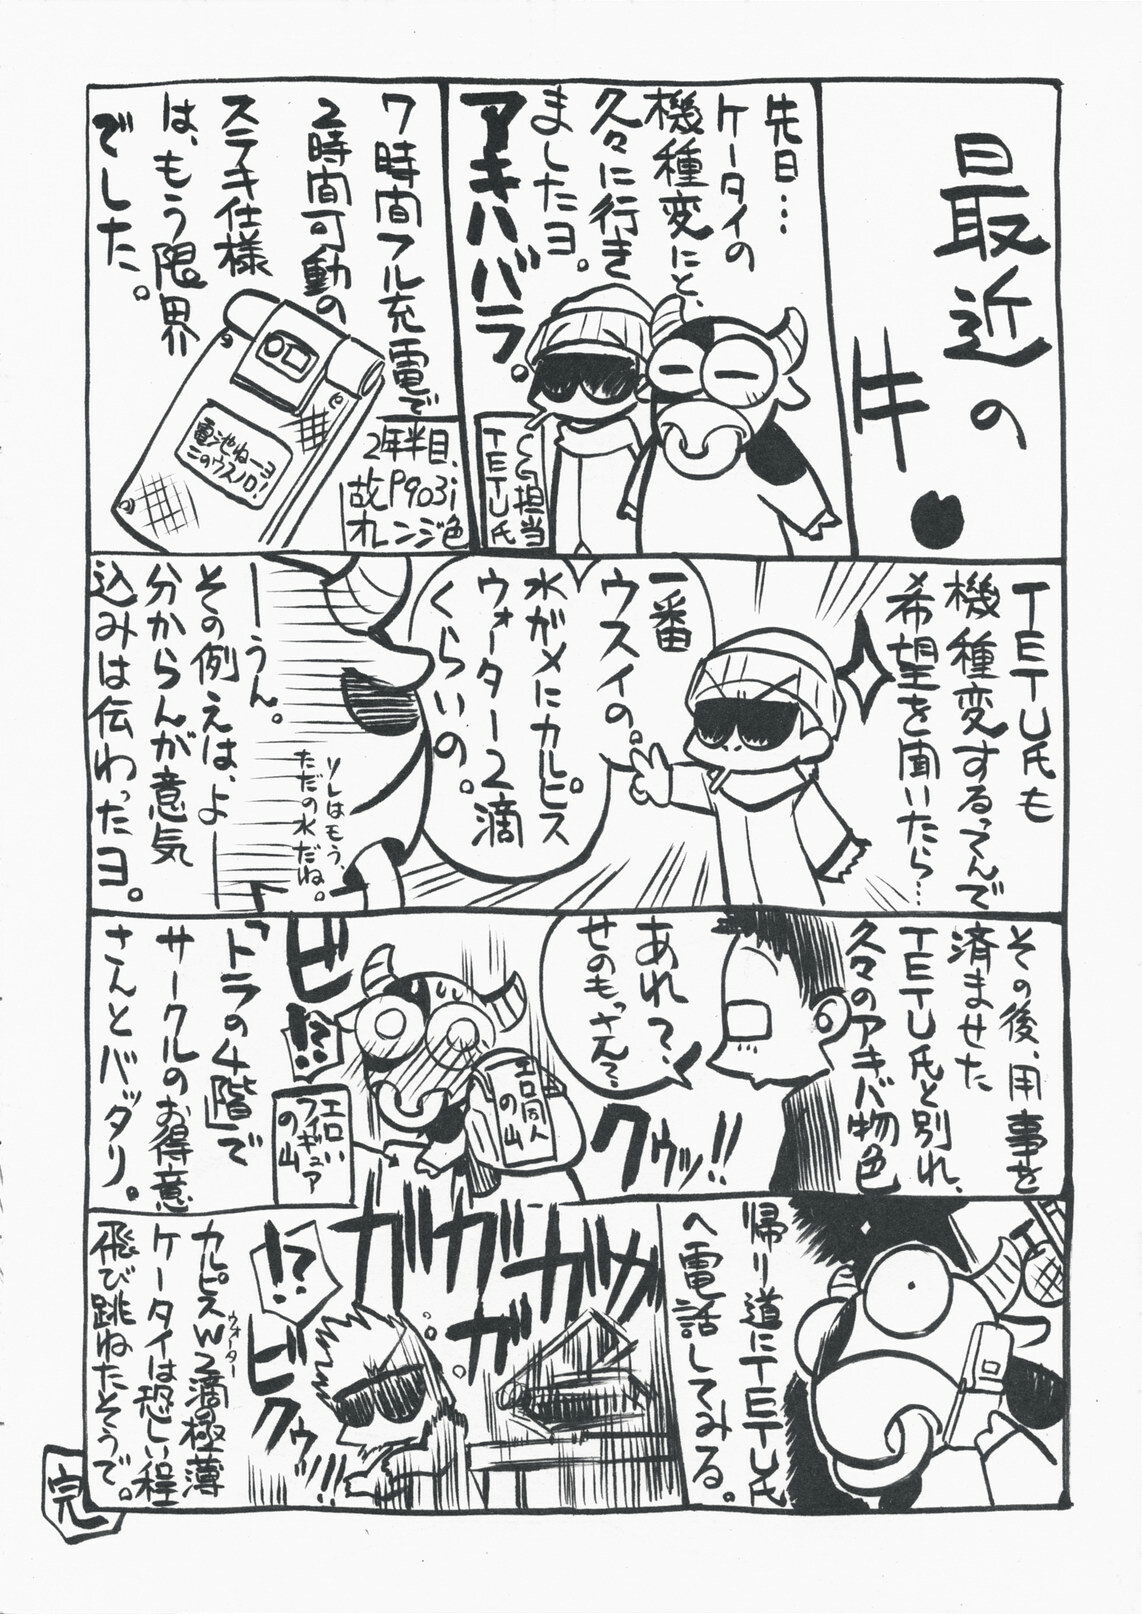 最近の
牛。
先日…
ケータイの
機種変にと、
久々に行き
ましたヨ。
アキハバラ。
CG担当
TETU氏
7時間フル充電で
2時間可動の
ステキ仕様
は、もう限界
でした。
電池ねーヨ
このウスノロ!
2年半目、
故P903i
オレンジ色
TETU氏も
機種変するってんで
希望を聞いたら…
一番
ウスイの。
水ガメにカルピス
ウォーター2滴
くらいの。
ソレはもう、
ただの水だね。
ーうん。
その例えは、よー
分からんが意気
込みは伝わったヨ。
その後、用事を
済ませた
TETU氏と別れ、
久々のアキバ物色
あれ?
せのもっさん?
クウッ!!
ビ
!?
エロ同人
の山
エロい
フィギュア
の山
「トラの4階」で
サークルのお得意
さんとバッタリ。
帰り道にTETU氏
へ電話してみる。
ガガガガガ
!?
ビクウッ!!!
カルピスW2滴極薄
ウォーター
ケータイは恐しい程
飛び跳ねたそうで。
完